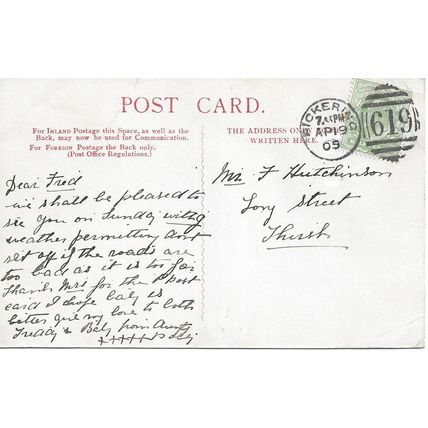 POST CARD.
For INLAND Postage this Space, as well as the
Back, may now be used for Communication.
For FOREIGN Postage the Back only.
(Post Office Regulations.)
THE ADDRESS ONLY
WRITTEN HERE.
PICKERING
AP 19
05
619
Dear Fred
we shall be pleased to
see you on Sunday
weather permitting dont
set off if the roads are
too bad as it is too far
Thank Mrs for the post
card I hope baby is
better give my love to both
Freddy & Baby from Aunty
Mr F Hutchinson
Long Street
Thirsk